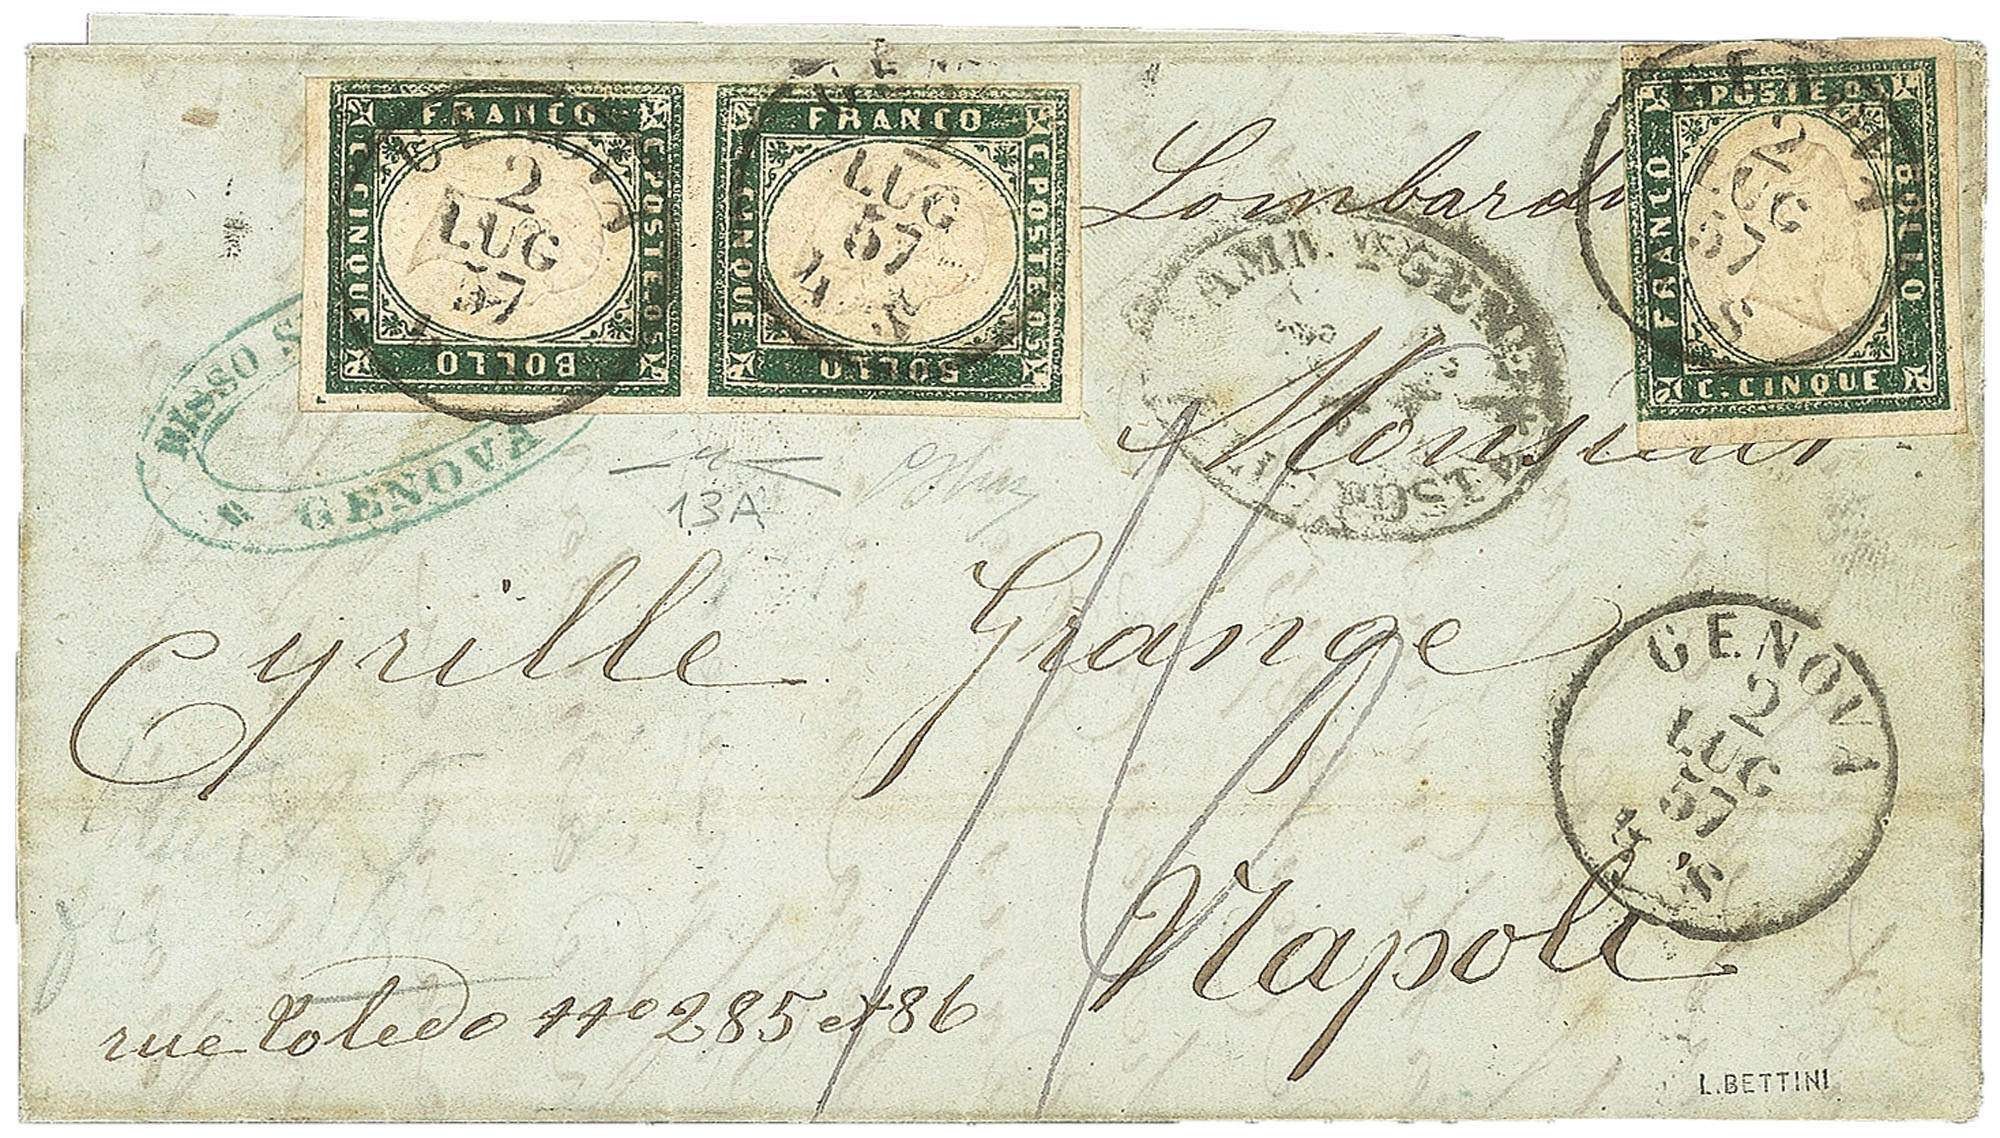 FRANCO
C. POSTE 05
BOLLO
C. CINQUE
GENOVA
2
LUG
57
FRANCO
C. POSTE 05
BOLLO
C. CINQUE
LUG
57
C. POSTE 05
BOLLO
C. CINQUE
FRANCO
GENOVA
2
LUG
57
Lombardo
BISSO
GENOVA
AMM. GEN.
Monsieur
13A
Cyrille Grange
GENOVA
2
LUG
57
4 S.
Napoli
rue Toledo nno 285 et 86
L. BETTINI